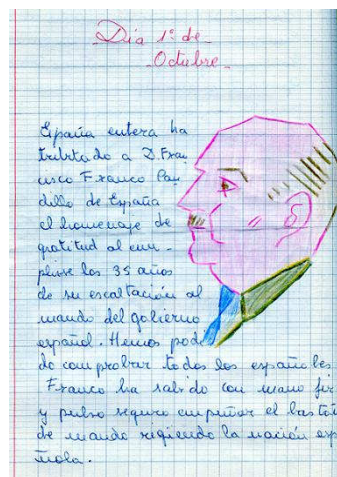 Día 1º de
Octubre
España entera ha
tributado a D. Fran
cisco Franco Cau
dillo de España
el homenaje de
gratitud al cum -
plirse los 35 años
de su escaltación al
mando del gobierno
español. Hemos podi
do comprobar todos los españoles
Franco ha sabido con mano fir
y pulso seguro empuñar el bastón
de mando rigiendo la nación esp
ñola.